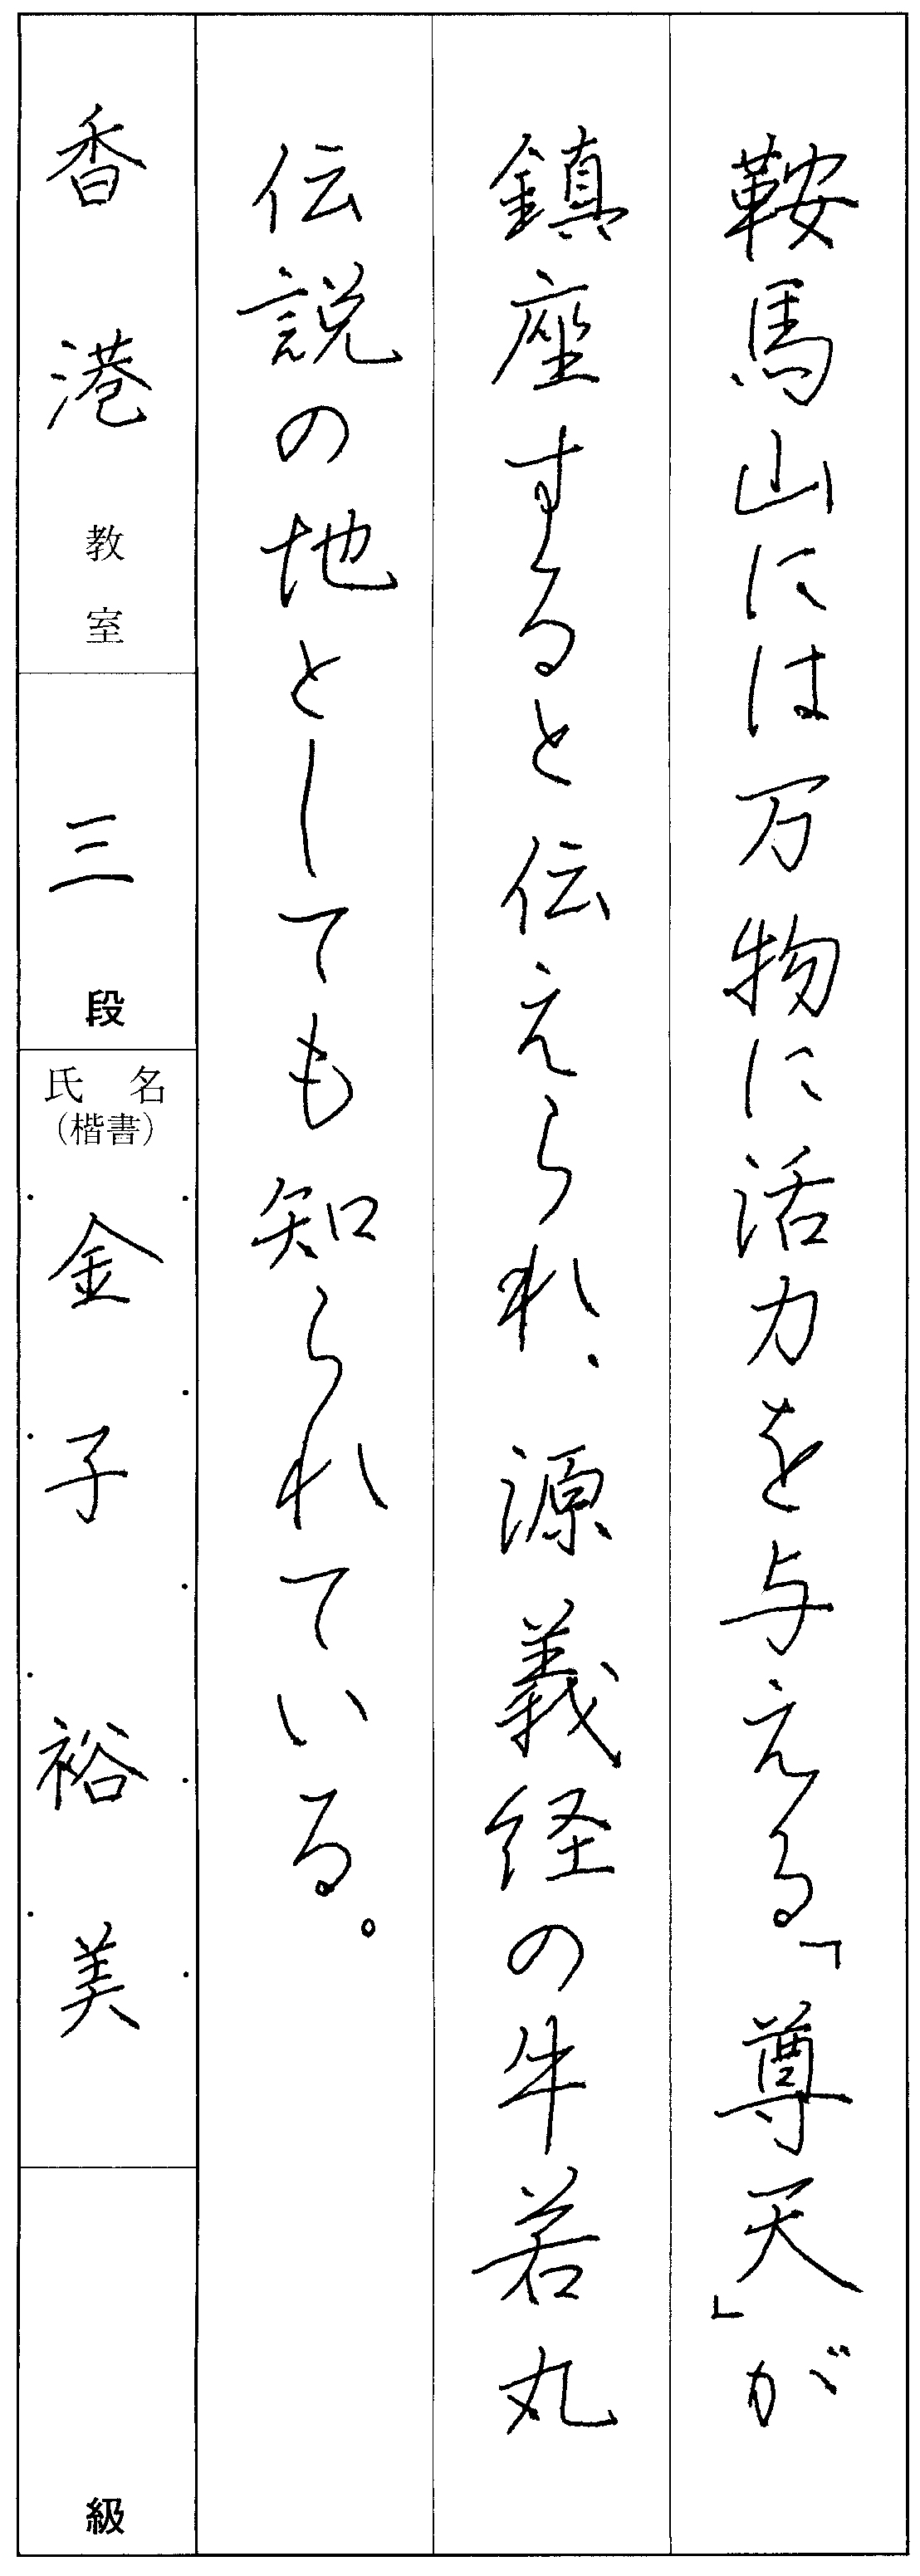 鞍馬山には万物に活力を与える「尊天」が
鎮座すると伝えられ、源義経の牛若丸
伝説の地としても知られている。
香港教室
三段
氏名
（楷書）
金子裕美
級